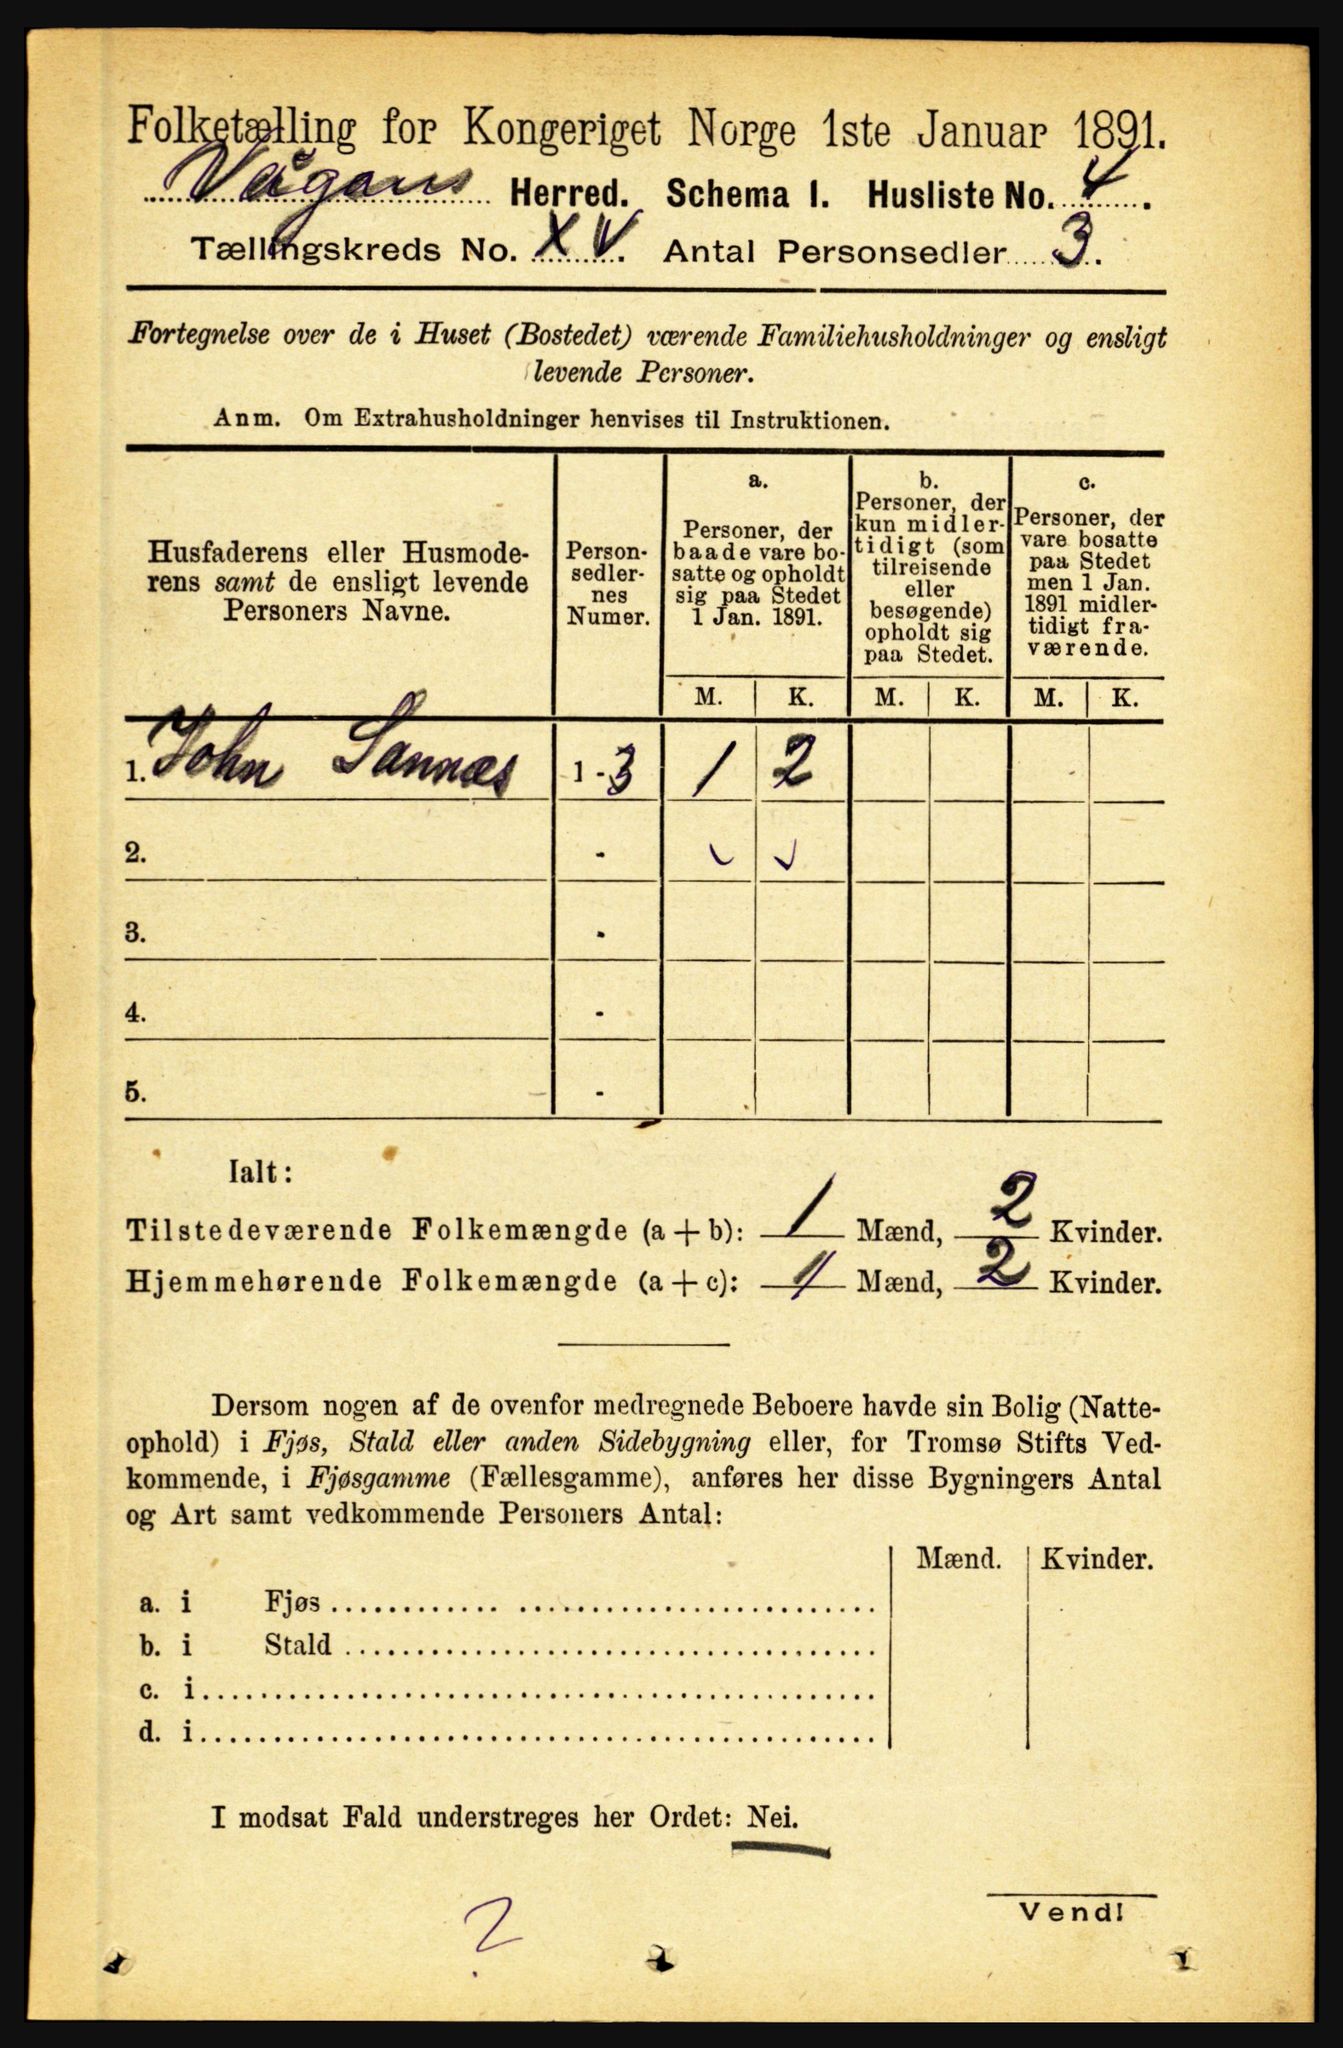 Folketælling for Kongeriget Norge 1ste Januar 1891.
Vågans Herred. Schema 1. Husliste No. 4.
Tællingskreds No. XV. Antal Personsedler 3.
Fortegnelse over de i Huset (Bostedet) værende Familiehusholdninger og ensligt
levende Personer.
Anm. Om Extrahusholdninger henvises til Instruktionen.
Husfaderens eller Husmode-
rens samt de ensligt levende
Personers Navne.
Person-
sedler-
nes
Numer.
a.
Personer, der
baade vare bo-
satte og opholdt
sig paa Stedet
1 Jan. 1891.
b.
Personer, der
kun midler-
tidigt (som
tilreisende
eller
besøgende)
opholdt sig
paa Stedet.
c.
Personer, der
vare bosatte
paa Stedet
men 1 Jan.
1891 midler-
tidigt fra-
værende.
M. K. M. K. M. K.
1. John Sannæs 1-3 1 2
2. -
3. -
4. -
5. -
Ialt:
Tilstedeværende Folkemængde (a + b): 1 Mænd, 2 Kvinder.
Hjemmehørende Folkemængde (a + c): 1 Mænd, 2 Kvinder.
Dersom nogen af de ovenfor medregnede Beboere havde sin Bolig (Natte-
ophold) i Fjøs, Stald eller anden Sidebygning eller, for Tromsø Stifts Ved-
kommende, i Fjøsgamme (Fællesgamme), anføres her disse Bygningers Antal
og Art samt vedkommende Personers Antal:
Mænd. Kvinder.
a. i Fjøs
b. i Stald
c. i
d. i
I modsat Fald understreges her Ordet: Nei.
Vend!
2